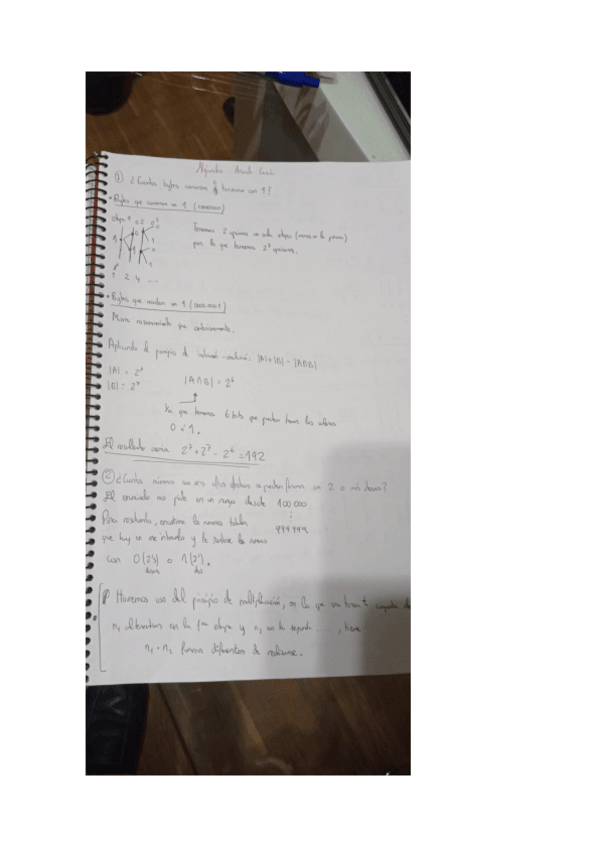 Alejandro
① ¿Cuántos bytes comienzan o terminan con 1?
• Bytes que comienzan con 1 (1000000)
etapa 1
Tenemos 2 opciones en cada etapa (menos en la primera)
por lo que tenemos 2⁷ opciones.
1 2 4 ...
• Bytes que terminan con 1 (0000 0001)
Mismo razonamiento que anteriormente.
Aplicando el principio de inclusión-exclusión: |A|+|B| - |A∩B|
|A| = 2⁷
|B| = 2⁷ |A∩B| = 2⁶
Ya que tenemos 6 bits que pueden tomar los valores
0 ó 1.
El resultado sería 2⁷ + 2⁷ - 2⁶ = 192
② ¿Cuántos números con seis cifras distintas se pueden formar con 2 o más?
El enunciado nos pide en un rango desde 100 000
⋮
999 999
Para resolverlo, encontramos los números totales
que hay en ese intervalo y le restamos los números
con 0 (25) o 1 (2⁵).
Haremos uso del principio de multiplicación, en la que una tarea t compuesta de
n₁ alternativas en la 1ª etapa y n₂ en la segunda ...., tiene
n₁ · n₂ formas diferentes de realizarse.